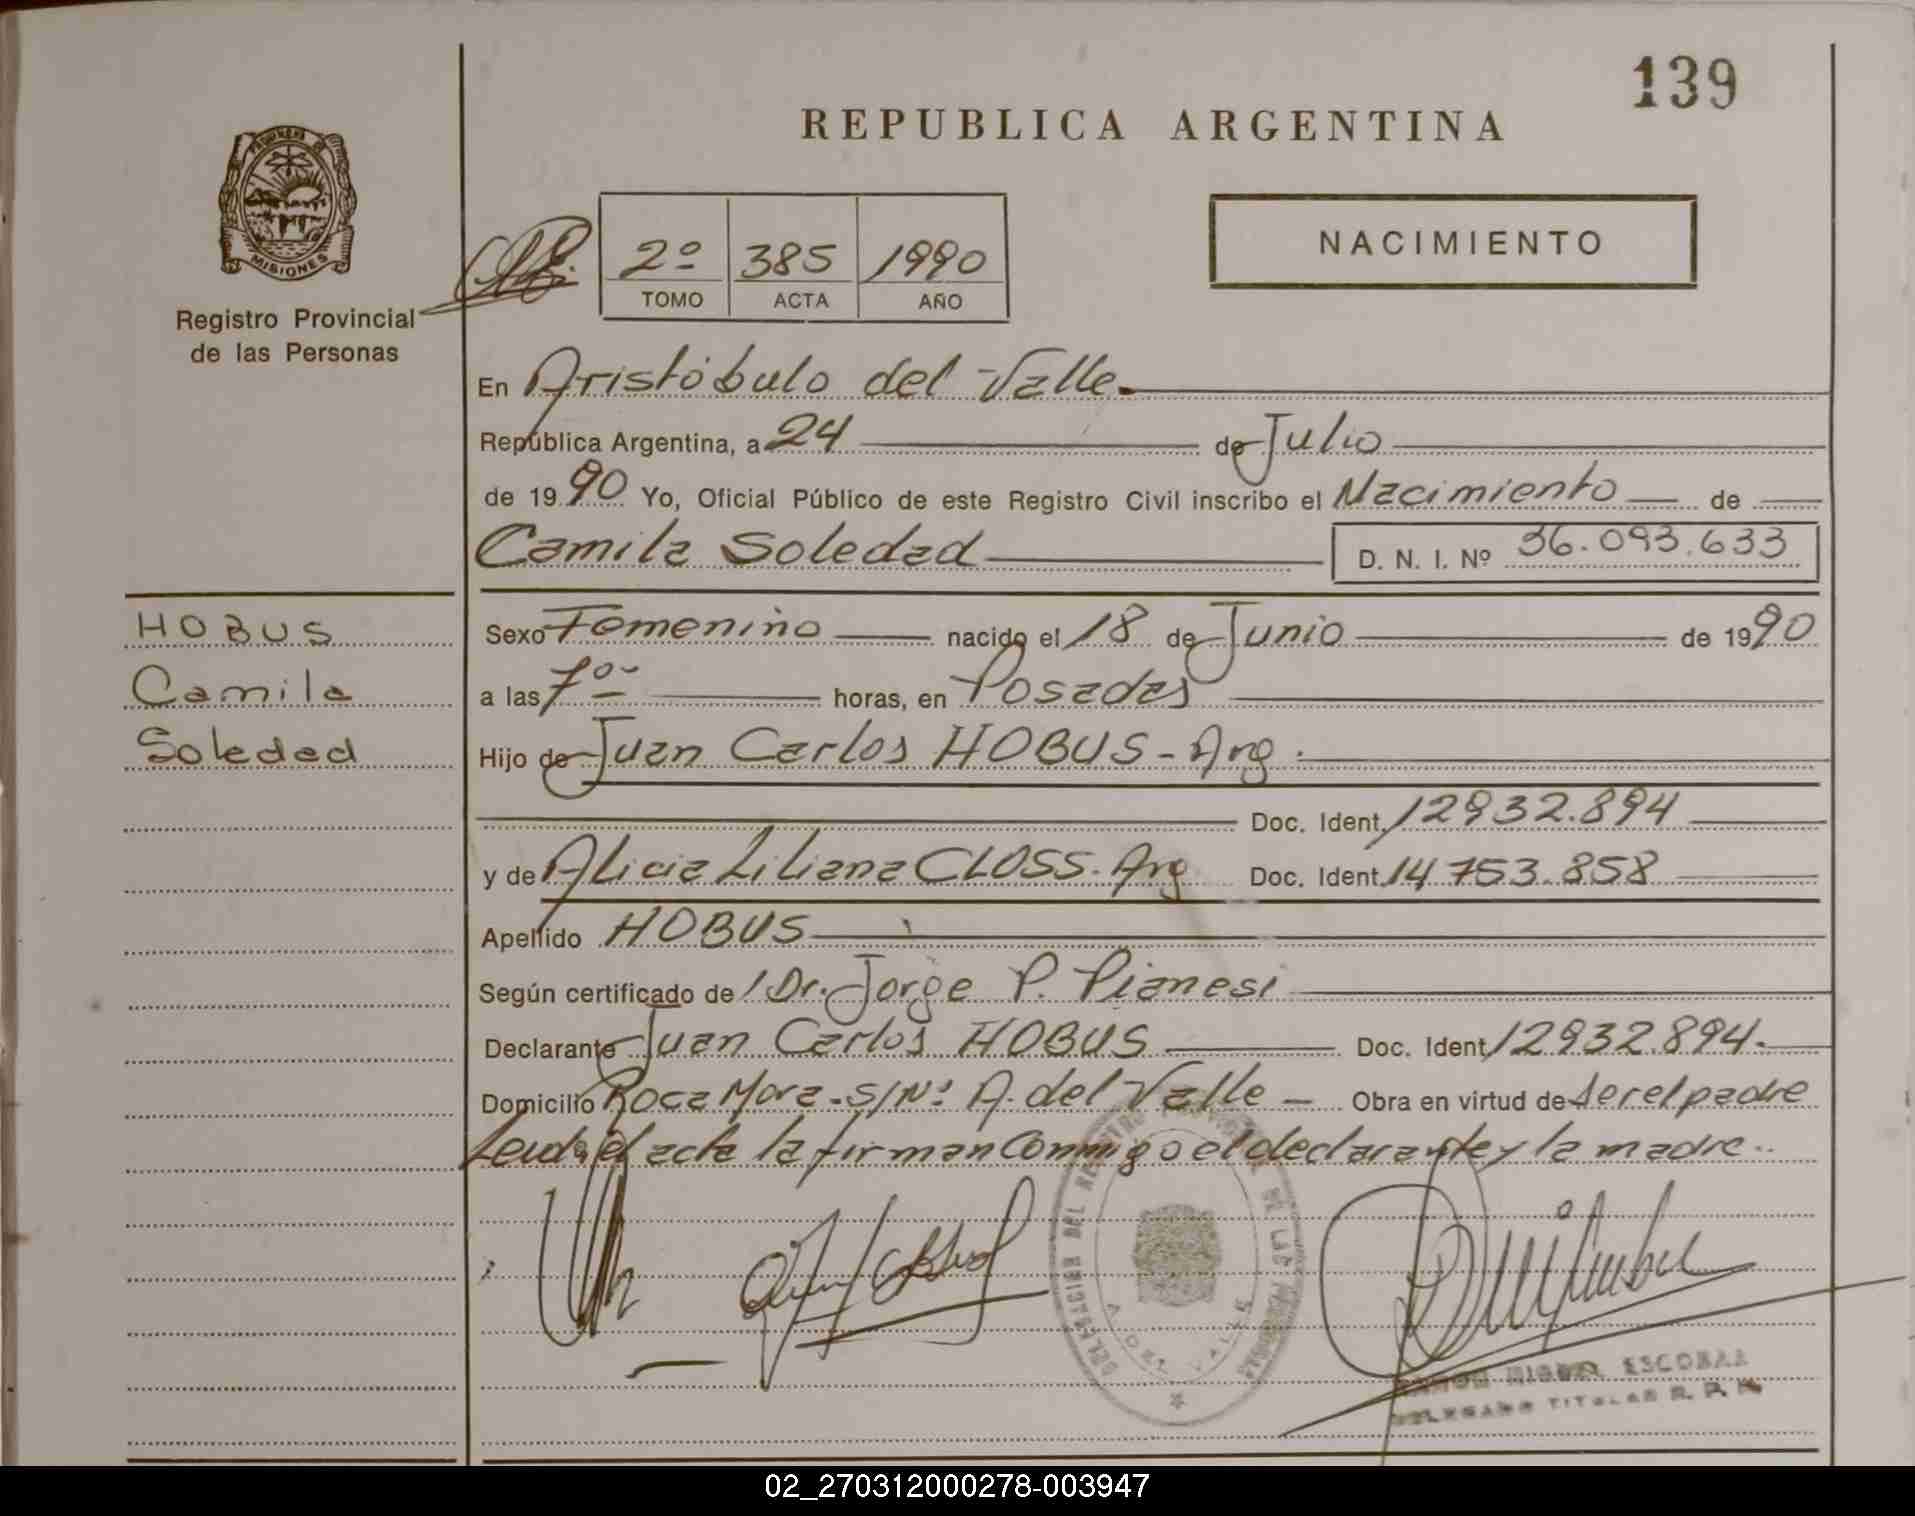 139
REPUBLICA ARGENTINA
PROVINCIA DE
MISIONES
Registro Provincial
de las Personas
2º 385 1990
TOMO ACTA AÑO
NACIMIENTO
En Aristóbulo del Valle.
República Argentina, a 24 de Julio
de 1990 Yo, Oficial Público de este Registro Civil inscribo el Nacimiento de
Camila Soledad D. N. I. Nº 36.093.633
HOBUS
Camila
Soledad
Sexo Femenino nacido el 18 de Junio de 1990
a las 7 horas, en Posadas
Hijo de Juan Carlos HOBUS - Arg.
Doc. Ident. 12932.894
y de Alicia Liliana CLOSS. Arg Doc. Ident. 14753.858
Apellido HOBUS
Según certificado de Dr. Jorge P. Pianesi
Declarante Juan Carlos HOBUS Doc. Ident. 12932.894.
Domicilio Roca Mora - S/Nº A. del Valle Obra en virtud de ser el padre
Leída el acta la firman conmigo el declarante y la madre.
DELEGACION DEL REGISTRO PROVINCIAL DE LAS PERSONAS
A. DEL VALLE
RAMON MIGUEL ESCOBAR
DELEGADO TITULAR R. P. P.
02_270312000278-003947